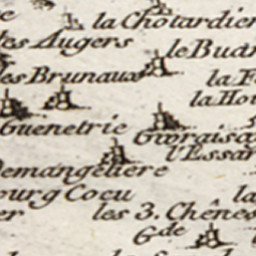 la Chotardier
tes Augers
le Buar
les Brunaux
la F
la Ho
Guenetrie
l'Essar
Demangetiere
ourg Cocu
la
er
les 3. Chênes
Gde